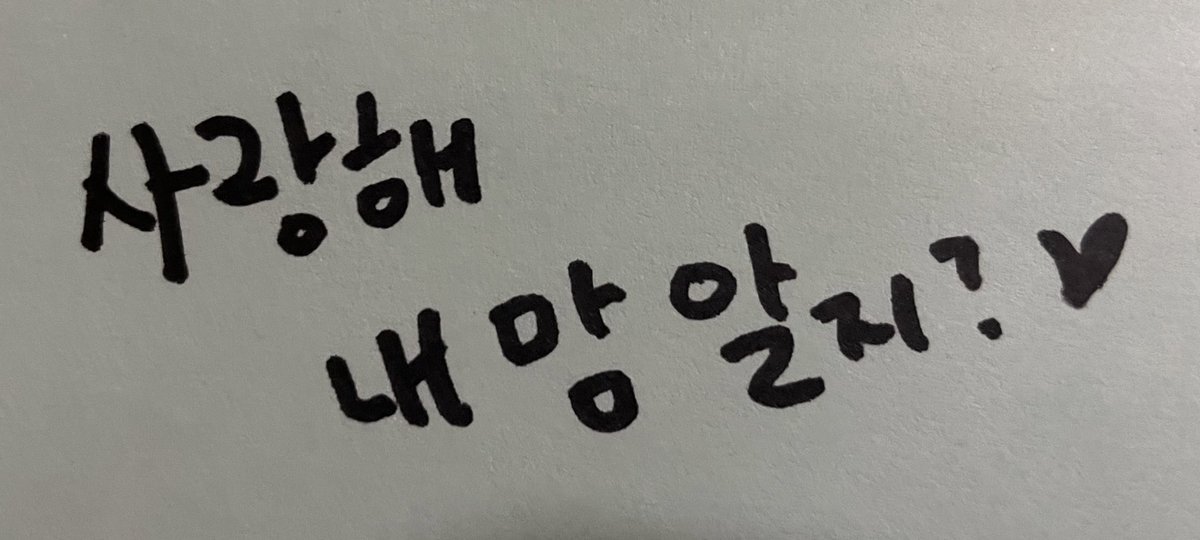 사랑해
내 맘 알지? ♥